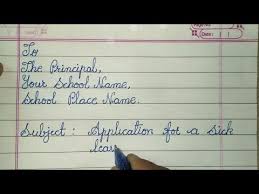 Date :
To
The Principal,
Your School Name,
School Place Name.
Subject : Application for a Sick